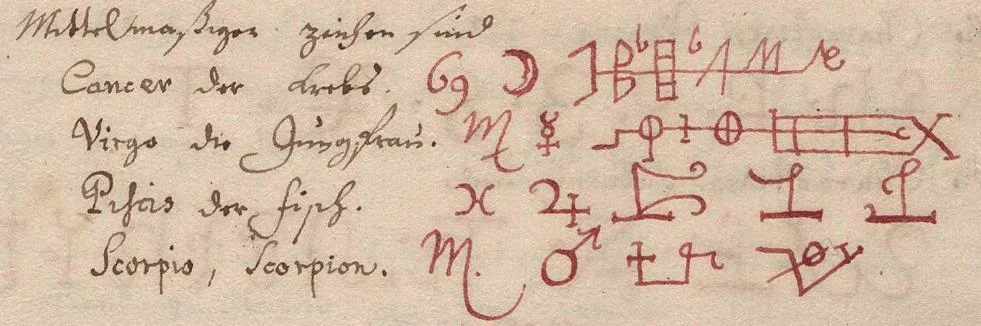 Mittelmaßiger zeichen sind
Cancer der Krebs. ♋ ☽
Virgo die Jungfrau. ♍ ☿
Pisces der Fisch. ♓ ♃
Scorpio, Scorpion. ♏ ♂